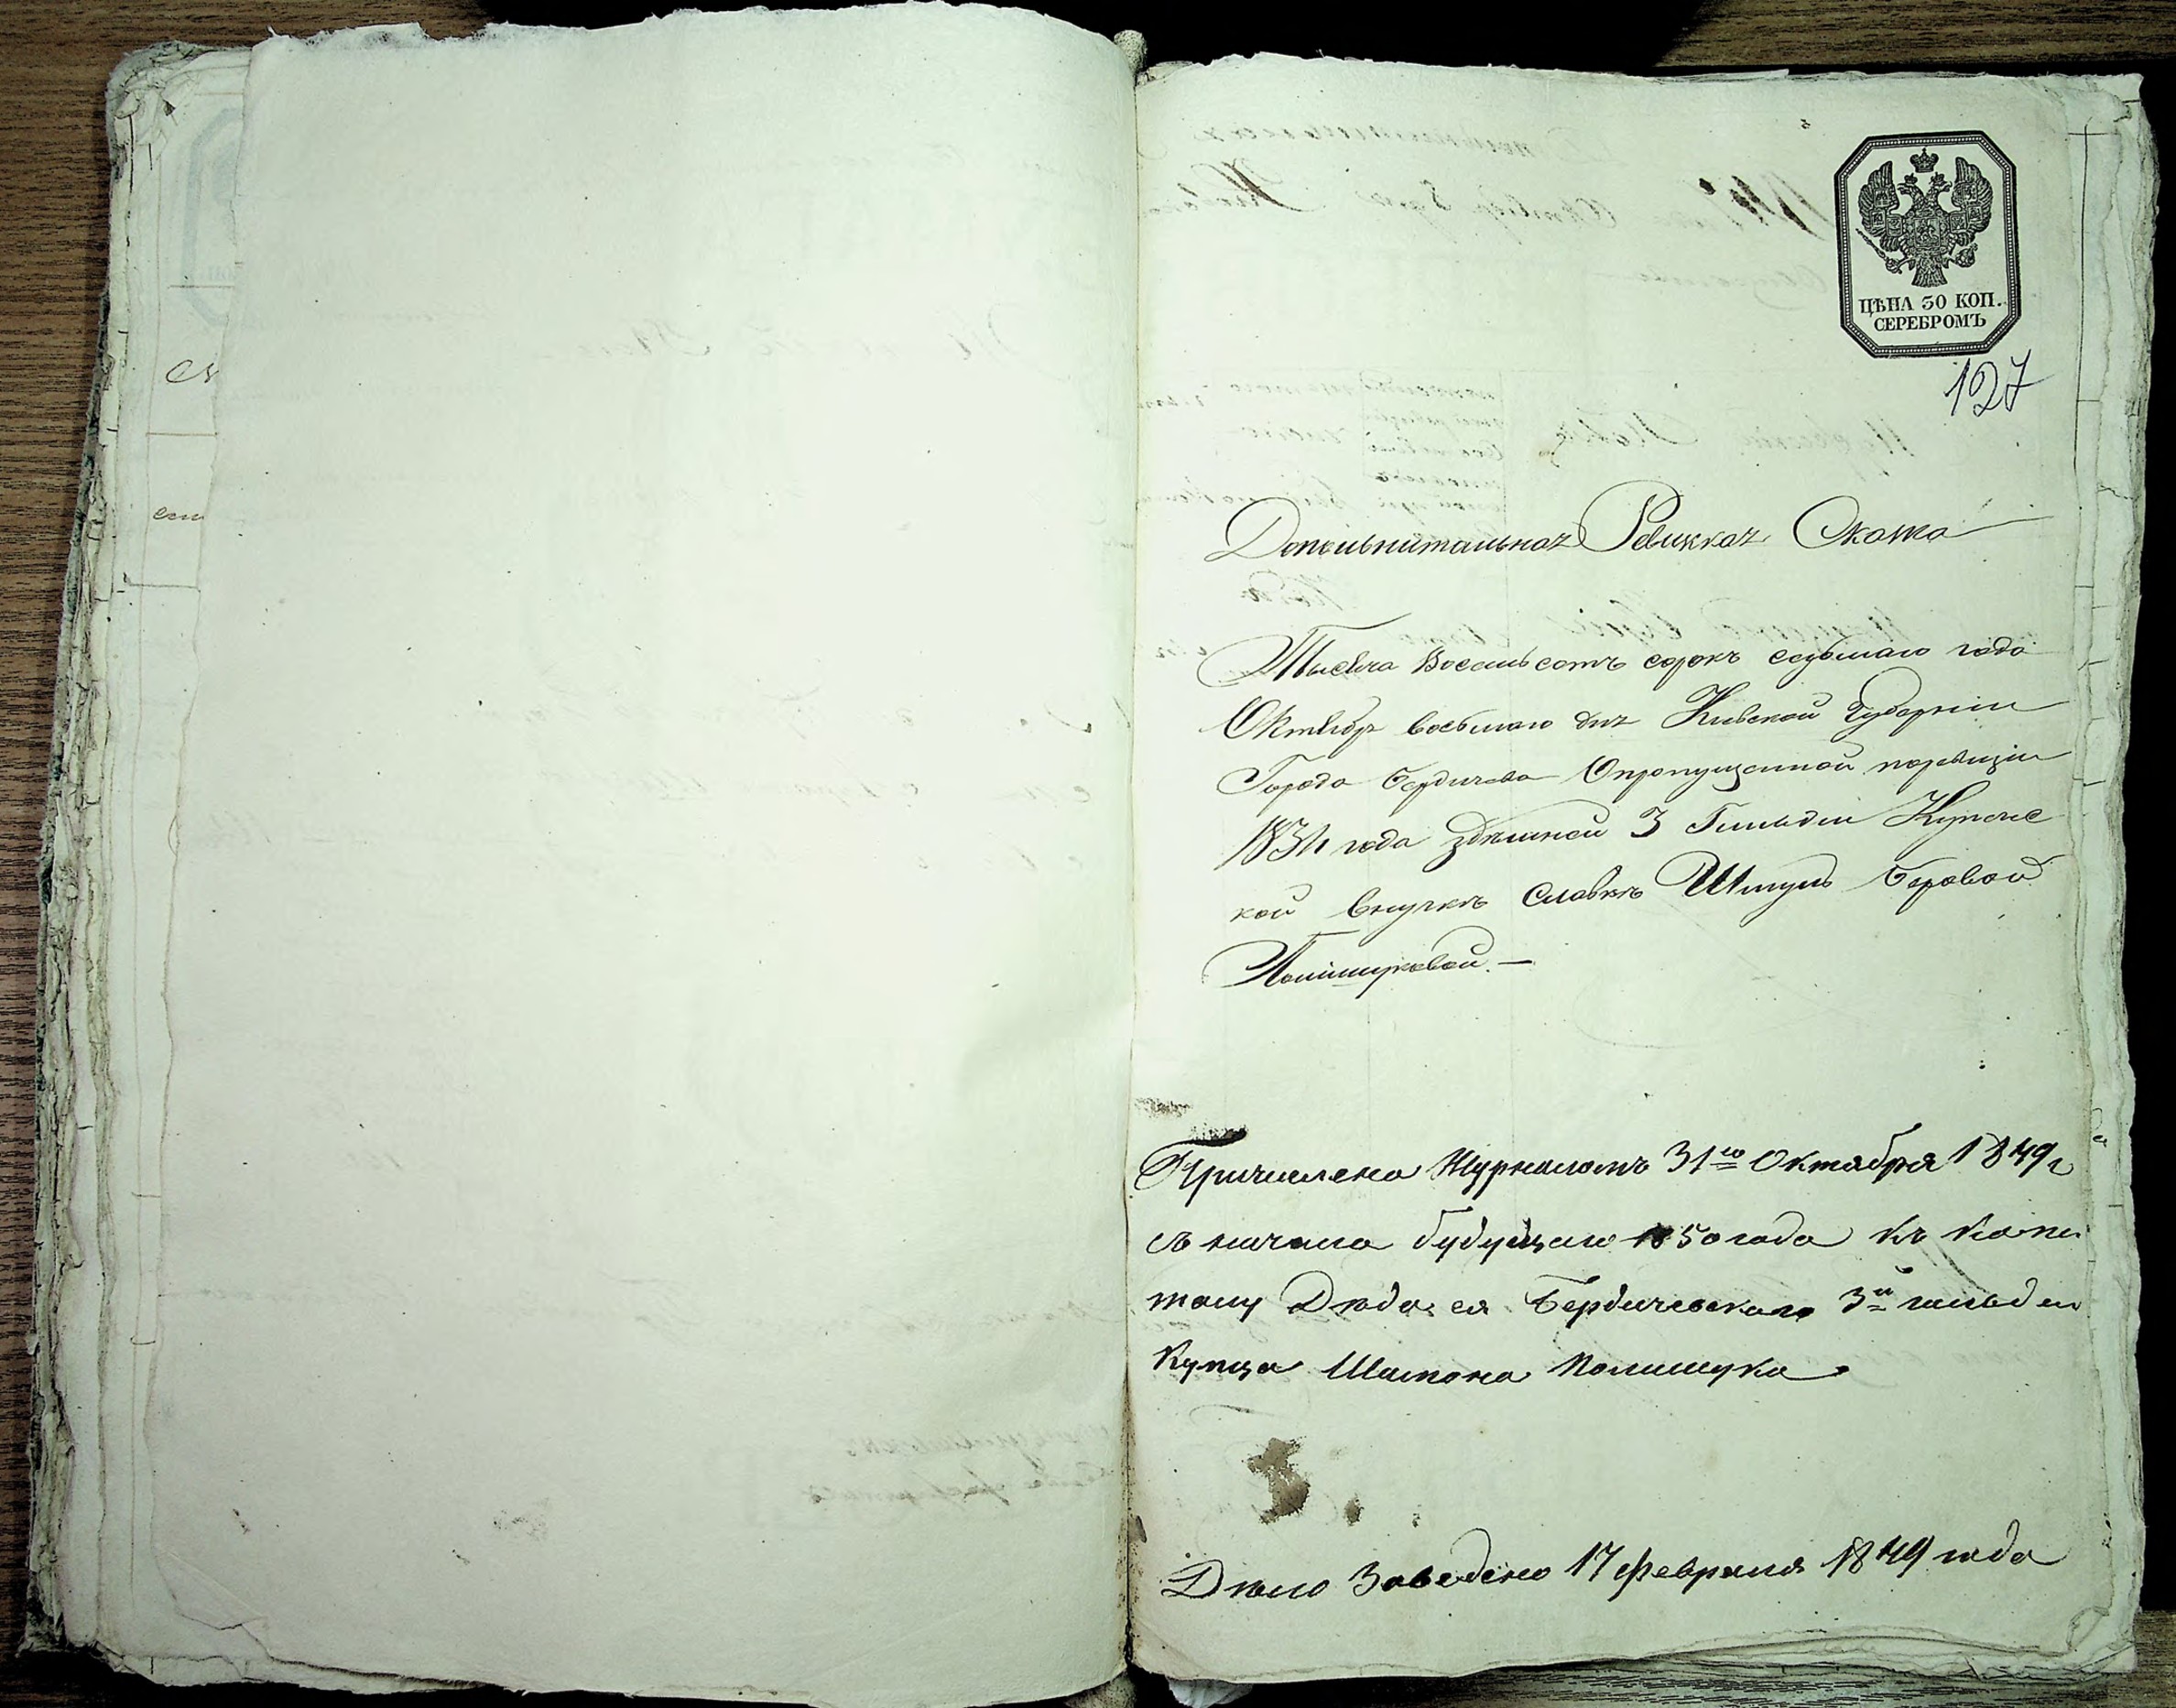 ЦѢНА 30 КОП.
СЕРЕБРОМЪ
127
Дополнительная Ревизкая Скаска
Тысяча Восемьсотъ сорокъ седьмаго года
Октября восьмаго дня Киевской Губернии
Города Бердичева О пропущенной поревизіи
1834 года здѣшней 3 Гильдіи Купечес
кой внучкѣ Славкѣ Шмуль Беровой
Полищуковой. —
Причислена Журналомъ 31го Октября 1849 г
съ начала будущаго 1850 года къ капи
талу Дѣда ея Бердичевскаго 3й гильдии
Купца Шимона Полищука
Дѣло Заведено 17 февраля 1849 года
ск
ем